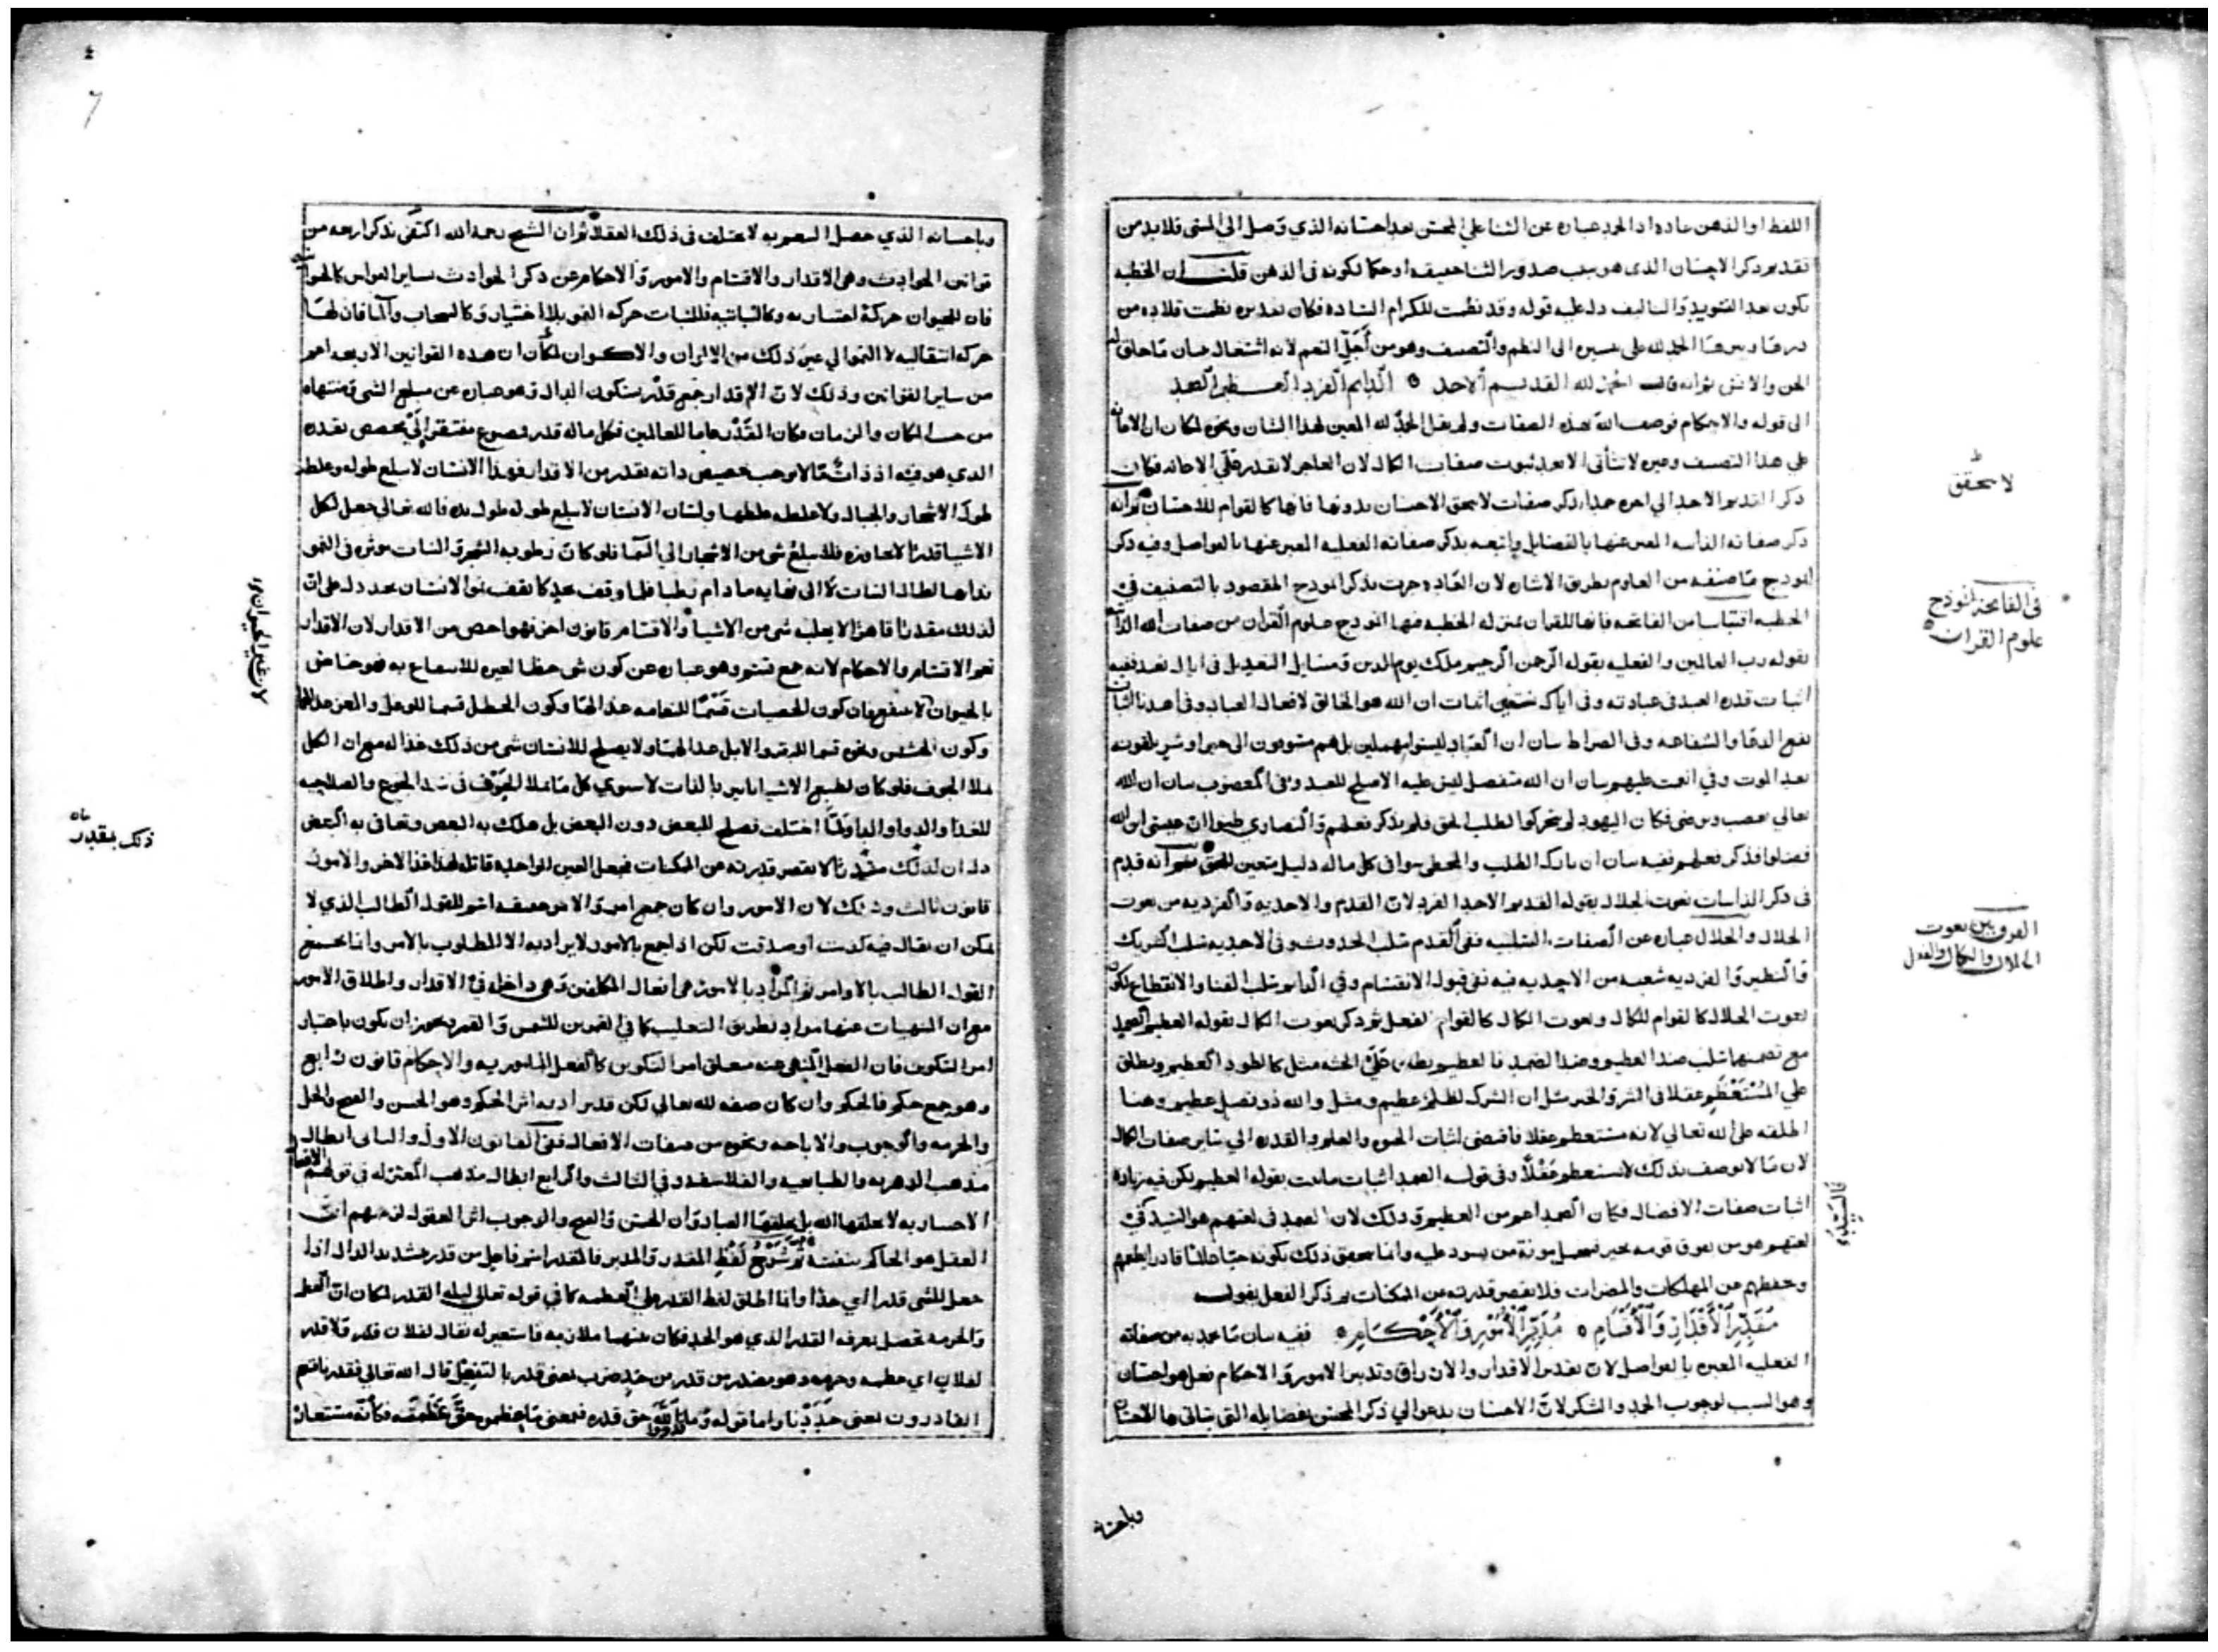 اللفظ او الذهن عادة اذ الحمد عبارة عن الثنا على المحسن بعد احسانه الذي وصل الى المثنى فلا بد من
تقديم ذكر الاحسان الذى هو سبب صدور الثنا حقيقة او حكما بكونه فى الذهن قلنا ان الخطبة
تكون بعد التسويد والتاليف دل عليه قوله وقد نظمت للكرام السادة فكان تقديره نظمت قلادة من
الحمد لله على تيسيره الى النظم والتصنيف وهو من اجل النعم لانه اشتغال
الجن والانس ثم انه قال الحمد لله القديم الاحد الدايم الفرد العظيم الصمد
الى قوله والاحكام فوصف الله بهذه الصفات ولم يقل الحمد لله المعين لهذا الشان ونحوه لمكان ان الاعانة
على هذا التصنيف وغيره لا يتأتى الا بعد ثبوت صفات الكمال لان العاجز لا يقدر على الاعانة فكان
ذكر القديم الاحد الى اخره حمدا بذكر صفات لا يتحقق الاحسان بدونها فانها كالقوام للاحسان ثم انه
ذكر صفاته الذاتية المعبر عنها بالفضايل واتبعه بذكر صفاته الفعلية المعبر عنها بالفواضل وفيه ذكر
انموذج ما صنفه من العلوم بطريق الاشارة لان العادة جرت بذكر انموذج المقصود بالتصنيف في
الخطبة اقتباسا من الفاتحة فانها للقران بمنزلة الخطبة ففيها انموذج علوم القران من صفات الله الذاتية
بقوله رب العالمين والفعلية بقوله الرحمن الرحيم ملك يوم الدين ومسايل التعديل فى اياك نعبد ففيه
اثبات قدرة العبد فى عبادته وفى اياك نستعين اثبات ان الله هو الخالق لافعال العباد وفى اهدنا اثبات
نفع الدعا والشفاعة وفى الصراط بيان ان العباد ليسوا بمهملين بل هم مسوقون الى خير او شر يلقونه
بعد الموت وفي انعمت عليهم بيان ان الله متفضل ليس عليه الاصلح للعبد وفى المغضوب بيان ان الله
تعالى يغضب ويرضى فكان اليهود لم يتحركوا لطلب الحق فلم يذكر فعلهم والنصارى طلبوا ان عيسى ابن الله
فضلوا فذكر فعلهم ففيه بيان ان تارك الطلب والمخطى سوا فى كل ما له دليل متعين للحق ثم انه قدم
فى ذكر الذاتيات نعوت الجلال بقوله القديم الاحد الفرد لان القدم والاحدية والفردية من نعوت
الجلال والجلال عبارة عن الصفات السلبية ففى القدم سلب الحدوث وفى الاحدية سلب الشريك
والنظير والفردية شعبة من الاحدية فيه نفى قبول الانقسام وفي الدايم سلب الفنا والانقطاع لكون
نعوت الجلال كالقوام للكمال ونعوت الكمال كالقوام للفعل ثم ذكر نعوت الكمال بقوله العظيم الصمد
مع تضمنهما سلب ضد العظيم وضد الصمد فالعظيم يطلق على الجثة مثل كالطود العظيم ويطلق
على المستعظم عقلا فى الشر والخير مثل ان الشرك لظلم عظيم ومثل والله ذو فضل عظيم وهنا
اطلقه على الله تعالى لانه مستعظم عقلا فاقتضى اثبات الحيوة والعلم والقدرة الى ساير صفات الكمال
لان ما لا يوصف بذلك لا يستعظم عقلا وفى قوله الصمد اثبات ما ثبت بقوله العظيم لكن فيه زيادة
اثبات صفات الافضال فكان الصمد اعم من العظيم وذلك لان الصمد فى لغتهم هو السيد
لغتهم هو من يفوق قومه بخير تحمل مونة من يسود عليه وانما يتحقق ذلك بكونه حيا عالما قادرا يطعمهم
وحفظهم عن المهلكات والمضرات فلا يقصر قدرته عن الممكنات ثم ذكر الفعل بقوله
مقدر الاقدار والاقسام مدبر الامور والاحكام ففيه بيان ما عد به من صفاته
الفعلية المعبرة بالفواضل لان تقدير الاقدار والارزاق وتدبير الامور والاحكام فعل هو احسان
وهو السبب لوجوب الحمد والشكر لان الاحسان يدعو الي ذكر المحسن بفضايله التى يتاتى بها الاحسان
وباحسانه
لا يتحقق
فى الفاتحة انموذج
علوم القران
الفرق بين نعوت
الجلال والكمال والفعل
وباحسانه الذي حصل النعم به لا يختلف فى ذلك العقلا ثم ان الشيخ رحمه الله اكتفى بذكر اربعة من
قوانين الحوادث وهى الاقدار والاقسام والامور والاحكام عن ذكر الحوادث بساير القوانين كالحيوانية
فان للحيوان حركة اختيارية وكالنباتية فللنبات حركة النمو بلا اختيار وكالسحاب والما فان لهما
حركة انتقالية لا النمو الى غير ذلك من الالوان والاكوان لمكان ان هذه القوانين الاربعة اعم
من ساير القوانين وذلك لان الاقدار جمع قدر بسكون الدال وهو عبارة عن مبلغ الشى ومنتهاه
من حيث المكان والزمان فكان القدر عاما للعالمين فكل ما له قدر مصنوع مفتقر الى مخصص بقدره
الذي هو فيه اذ ذات ما لا يوجب تخصيص ذاته بقدر من الاقدار فهذا الانسان لا يبلغ طوله وغلظه
طول الاشجار والجبال ولا غلظه غلظها ولسان الانسان لا يبلغ طوله طول يده فالله تعالى جعل لكل
الاشيا قدرا لا يجاوزه فلا يبلغ شى من الاشجار الى السما فلو كان رطوبة الشجر والنبات موثرة فى النمو
بذاتها لطال النبات لا الى نهاية ما دام رطبا فلما وقف بحد كما يقف نمو الانسان بحد دل على ان
لذلك مقدرا قاهرا لا يغلبه شى من الاشيا والاقسام قانون اخر فهو اخص من الاقدار لان الاقدار
تعم الاقسام والاحكام لانه جمع قسم وهو عبارة عن كون شى حظا لغيره للانتفاع به فهو خاص
وكون الحشيش ونحوه قسما للبقر والابل غذا لهما ولا يصلح للانسان شى من ذلك غذا له مع ان الكل
يملا الجوف فلو كان لطبع الاشيا تاثير بالذات لاستوى كل ما يملا الجوف فى سد الجوع والصلاحية
للغذا والدوا والدا ولما اختلف فصلح للبعض دون البعض بل هلك به البعض وتعافى به البعض
دل ان لذلك مقدرا لا يقصر قدرته عن الممكنات فجعل العين الواحدة قاتلة لهذا غذا لاخر والامور
قانون ثالث وذلك لان الامور وان كان جمع امر والامر حقيقة اسم للقول الطالب الذي لا
يمكن ان يقال فيه كذبت او صدقت لكن اذا جمع بالامور لا يراد به الا المطلوب بالامر وانما يجمع
القول الطالب بالاوامر ثم المراد بالامور هى افعال المكلفين وهى داخلة فى الاقدار واطلاق الامور
مع ان المنهيات عنها مراد بطريق التغليب كما فى القمرين للشمس والقمر يجوز ان يكون باعتبار
امر التكوين فان الفعل المنهى عنه متعلق امر التكوين كالفعل المامور به والاحكام قانون رابع
وهو جمع حكم فالحكم وان كان صفة لله تعالى لكن قد يراد به اثر الحكم وهو الحسن والقبح والحل
والحرمة والوجوب والاباحة ونحوه من صفات الافعال ففى القانون الاول والثانى ابطال
مذهب الدهرية والطبايعية والفلاسفة وفى الثالث والرابع ابطال مذهب المعتزلة فى قولهم الافعال
الاختيارية لا يخلقها الله بل يخلقها العباد وان الحسن والقبح والوجوب اثر العقول لزعمهم ان
العقل هو الحاكم بنفسه ثم شرح لفظ المقدر والمدبر فالمقدر اسم فاعل من قدر بتشديد الدال اذا
جعل للشى قدرا اي حدا وانما اطلق لفظ القدر على العظمة كما فى قوله تعالى ليلة القدر لمكان ان العظمة
والحرمة تحصل بمعرفة القدر الذي هو الحد فكان بينهما ملازمة فاستعير له يقال لفلان قدر ولا قدر
لفلان اى عظمة وحرمة وهو مصدر من قدر من حد ضرب بمعنى قدر بالتفعيل قال الله تعالى فقدرنا فنعم
القادرون بمعنى حددنا واما قوله وما قدروا الله حق قدره فمعنى ما عظموه حق عظمته فكأنه مستعار
ذلك بمقدر